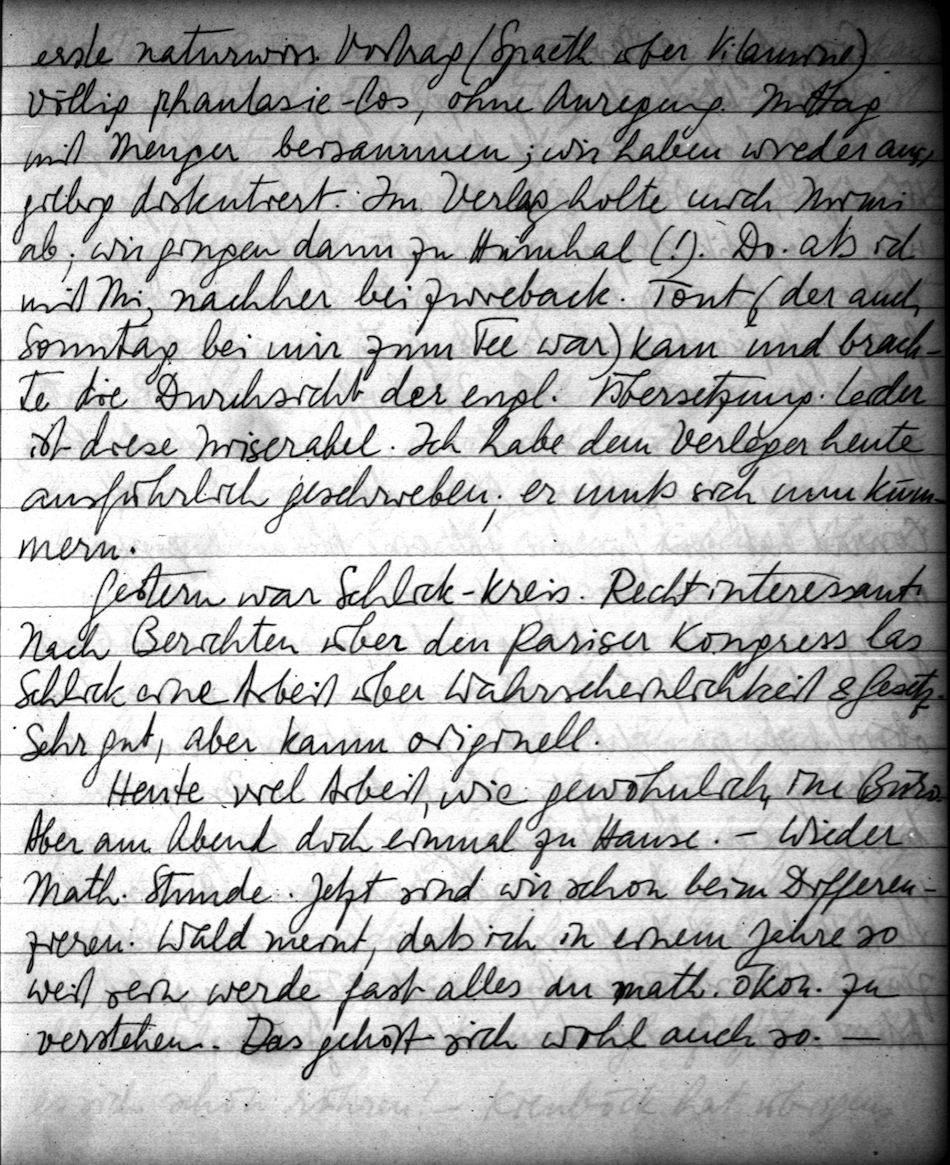 erste naturwiss. Vortrag (Spaeth über Vitamine)
völlig phantasie-los, ohne Anregung. Mittag
mit Menger beisammen; wir haben wieder aus-
giebig diskutiert. Im Verlag holte mich Mimi
ab; wir gingen dann zu Húnhal (!). Do. aß ich
mit Mi, nachher bei Zwieback. Tont (der auch
Sonntag bei mir zum Tee war) kam und brach-
te die Durchsicht der engl. Übersetzung. Leider
ist diese miserabel. Ich habe dem Verleger heute
ausführlich geschrieben; er muß sich nun küm-
mern.
Gestern war Schlick-Kreis. Recht interessant.
Nach Berichten über den Pariser Kongress las
Schlick eine Arbeit über Wahrscheinlichkeit & Gesetz
Sehr gut, aber kaum originell.
Heute viel Arbeit, wie gewöhnlich, im Büro.
Aber am Abend doch einmal zu Hause. – Wieder
Math. Stunde. Jetzt sind wir schon beim Differen-
zieren. Wald meint, daß ich in einem Jahre so
weit sein werde fast alles in math. Ökon. zu
verstehen. Das gehört sich wohl auch so. —